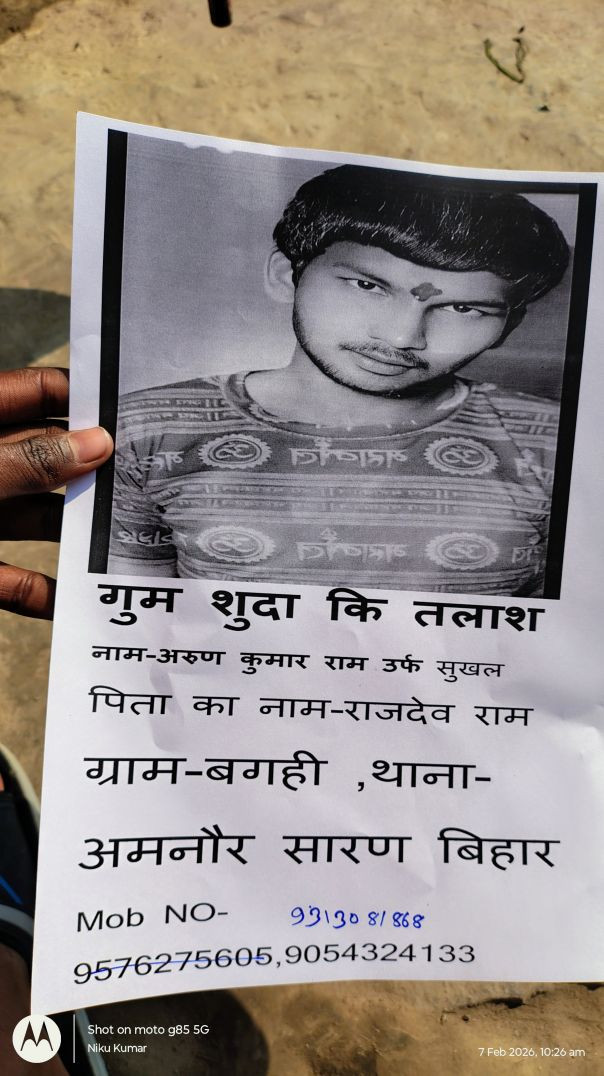 गुम शुदा कि तलाश
नाम-अरुण कुमार राम उर्फ सुखल
पिता का नाम-राजदेव राम
ग्राम-बगही ,थाना-
अमनौर सारण बिहार
Mob NO- 9313081868
9576275605,9054324133
Shot on moto g85 5G
Niku Kumar
7 Feb 2026, 10:26 am